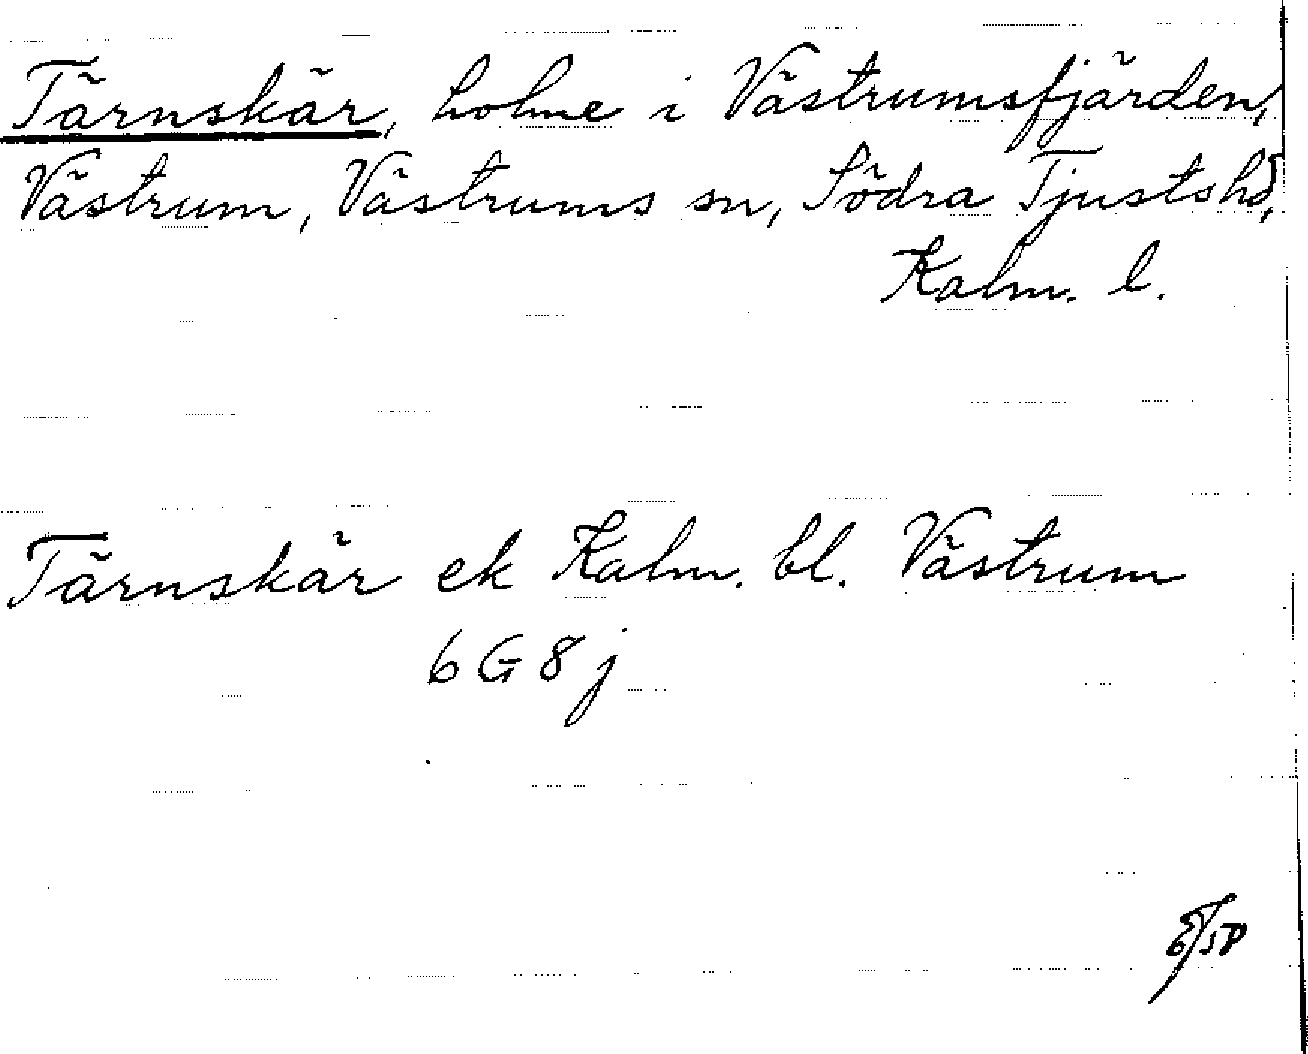 Tärnskär, holme i Västrumsfjärden,
Västrum, Västrums sn, Södra Tjusts hd,
Kalm. l.
Tärnskär ek Kalm. bl. Västrum
6 G 8 j